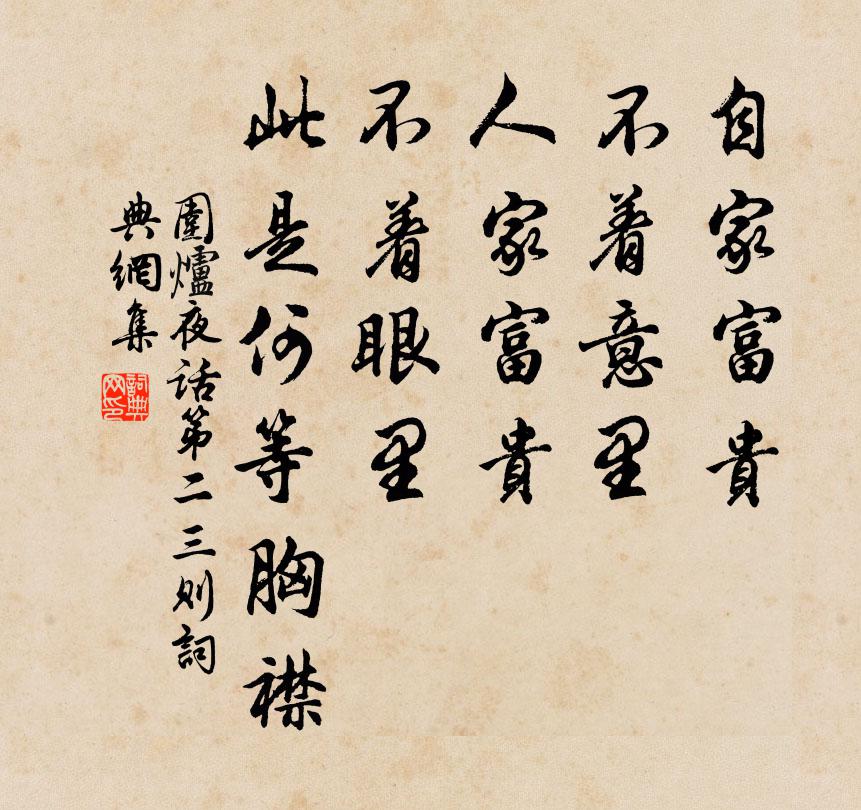 自家富貴
不着意里
人家富貴
不着眼里
此是何等胸襟
圍爐夜話第二三則詞
典網集
詞典網印